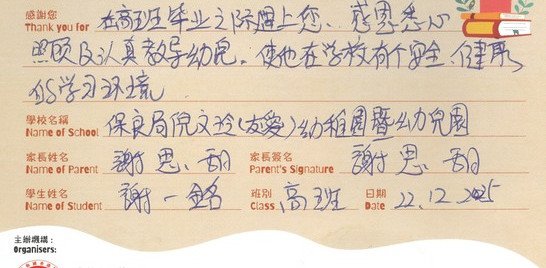 感謝您
Thank you for 在高班毕业之际遇上您、感恩悉心
照顾及认真教导幼儿。使他在学校有个安全、健康
的学习环境
學校名稱
Name of School 保良局倪文玲(友愛)幼稚園暨幼兒園
家長姓名 家長簽名
Name of Parent 謝思 Parent's Signature 謝思
學生姓名 班別 日期
Name of Student 謝一銘 Class 高班 Date 22.12.2025
主辦機構：
Organisers: